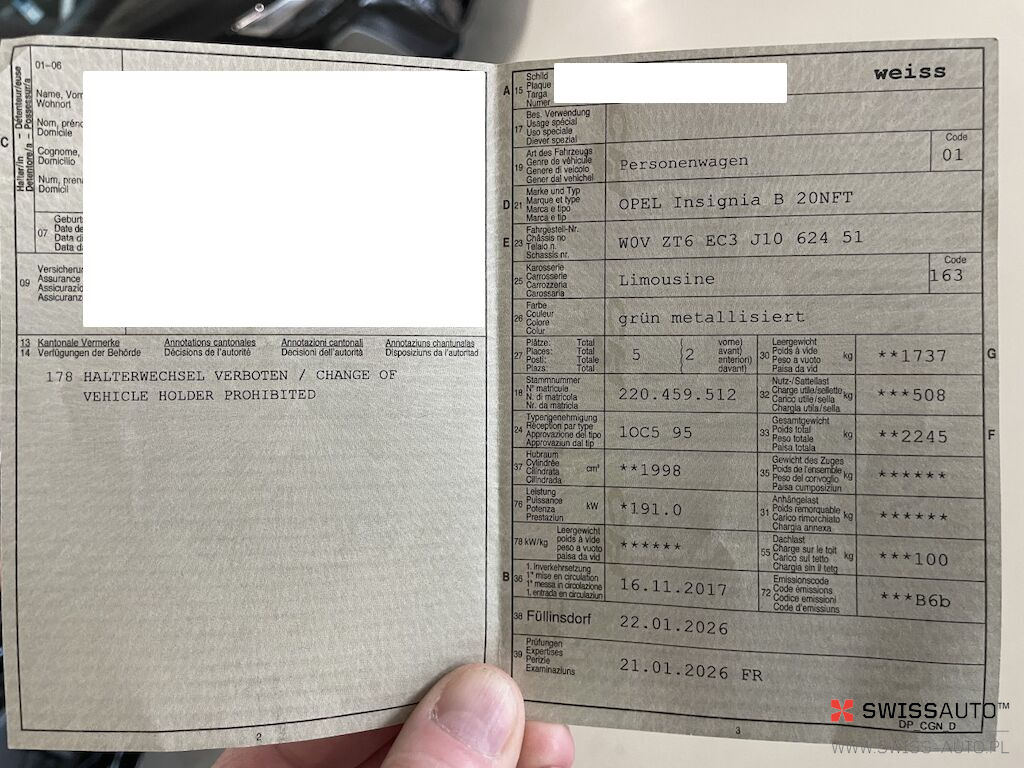 C
Halter/in – Détenteur/euse
Detentore/a – Possessur/a
01–06
Name, Vorn
Wohnort
Nom, prénc
Domicile
Cognome,
Domicilio
Num, pren
Domicil
07
Geburt
Date de
Data di
Data da
09
Versicherun
Assurance
Assicurazio
Assicuranz
13 Kantonale Vermerke Annotations cantonales Annotazioni cantonali Annotaziuns chantunalas
14 Verfügungen der Behörde Décisions de l'autorité Decisioni dell'autorità Disposiziuns da l'autoritad
178 HALTERWECHSEL VERBOTEN / CHANGE OF
VEHICLE HOLDER PROHIBITED
2
weiss
A 15
Schild
Plaque
Targa
Numer
17
Bes. Verwendung
Usage spécial
Uso speciale
Diever spezial
19
Art des Fahrzeugs
Genre de véhicule
Genere di veicolo
Gener dal vehichel
Personenwagen
Code
01
D 21
Marke und Typ
Marque et type
Marca e tipo
Marca e tip
OPEL Insignia B 20NFT
E 23
Fahrgestell-Nr.
Châssis no
Telaio n.
Schassis nr.
W0V ZT6 EC3 J10 624 51
25
Karosserie
Carrosserie
Carrozzeria
Carossaria
Limousine
Code
163
26
Farbe
Couleur
Colore
Colur
grün metallisiert
27
Plätze: Total
Places: Total
Posti: Totale
Plazs: Total
5 (2
vorne)
avant)
anteriori)
davant)
30
Leergewicht
Poids à vide
Peso a vuoto
Paisa da vid
kg
**1737
G
18
Stammnummer
N° matricule
N. di matricola
Nr. da matricla
220.459.512
32
Nutz-/Sattellast
Charge utile/sellette
Carico utile/sella
Chargia utila/sella
kg
***508
24
Typengenehmigung
Réception par type
Approvazione del tipo
Approvaziun dal tip
1OC5 95
33
Gesamtgewicht
Poids total
Peso totale
Paisa totala
kg
**2245
F
37
Hubraum
Cylindrée
Cilindrata
Cilindrada
cm³
**1998
35
Gewicht des Zuges
Poids de l'ensemble
Peso del convoglio
Paisa cumposiziun
kg
******
76
Leistung
Puissance
Potenza
Prestaziun
kW
*191.0
31
Anhängelast
Poids remorquable
Carico rimorchiato
Chargia annexa
kg
******
78 kW/kg
Leergewicht
poids à vide
peso a vuoto
paisa da vid
******
55
Dachlast
Charge sur le toit
Carico sul tetto
Chargia sin il tetg
kg
***100
B 36
1. Inverkehrsetzung
1re mise en circulation
1a messa in circolazione
1. entrada en circulaziun
16.11.2017
72
Emissionscode
Code émissions
Codice emissioni
Code d'emissiuns
***B6b
38 Füllinsdorf
22.01.2026
39
Prüfungen
Expertises
Perizie
Examinaziuns
21.01.2026 FR
3
SWISSAUTO™
DP_CGN_D
WWW.SWISS-AUTO.PL